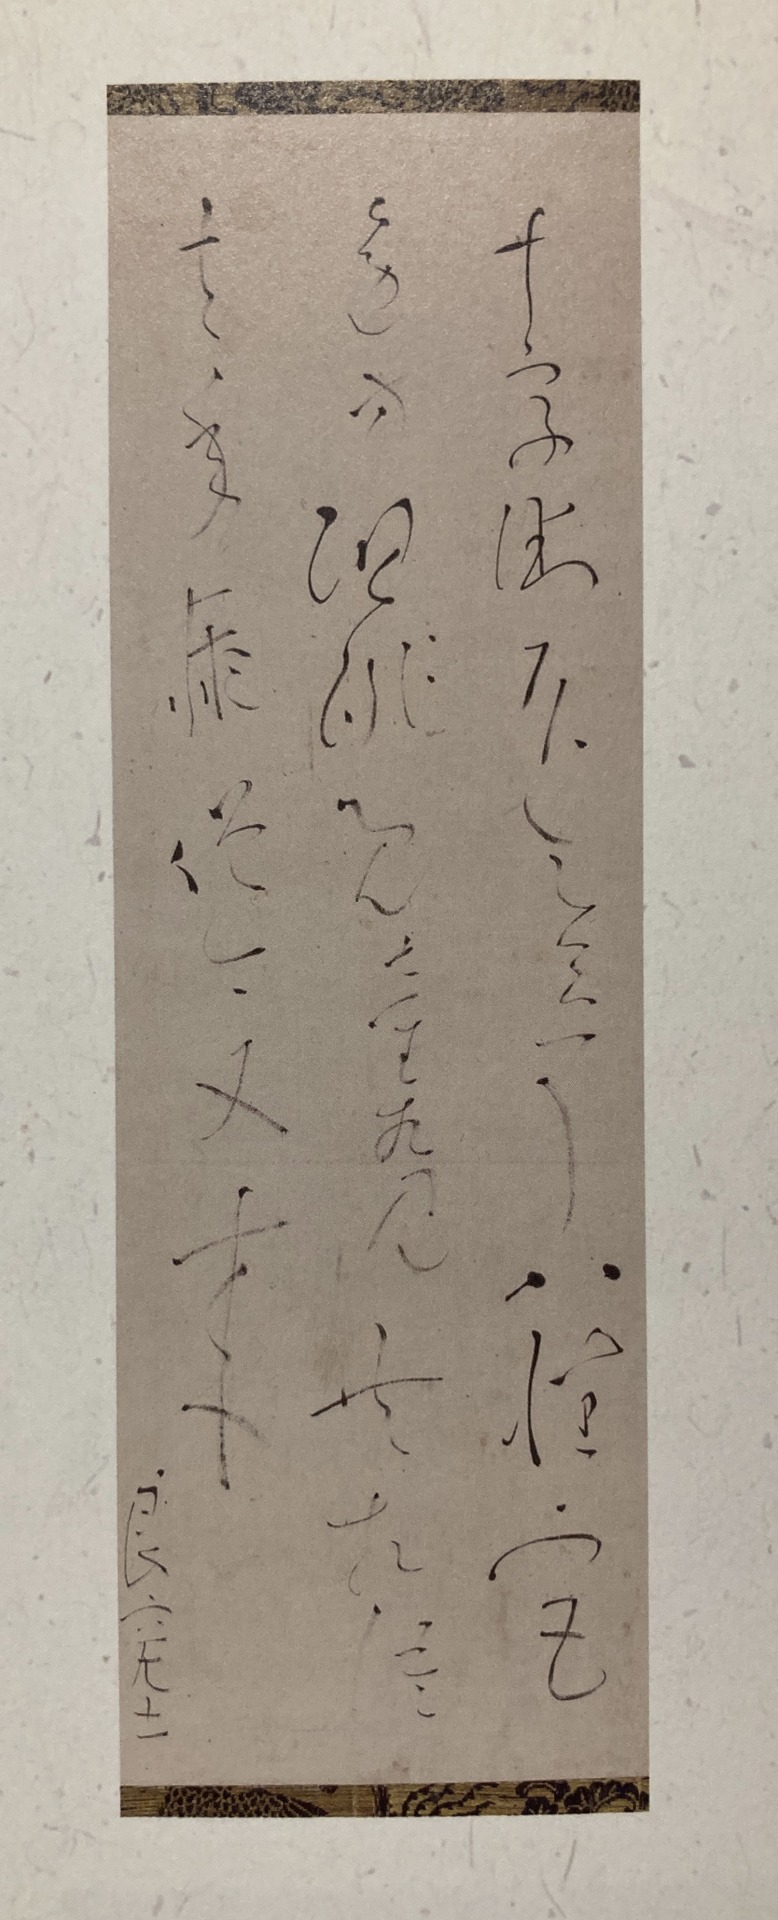 十字街頭乞食了八幡宮
邊方徘徊児童相見共相語
去年痴僧今又来